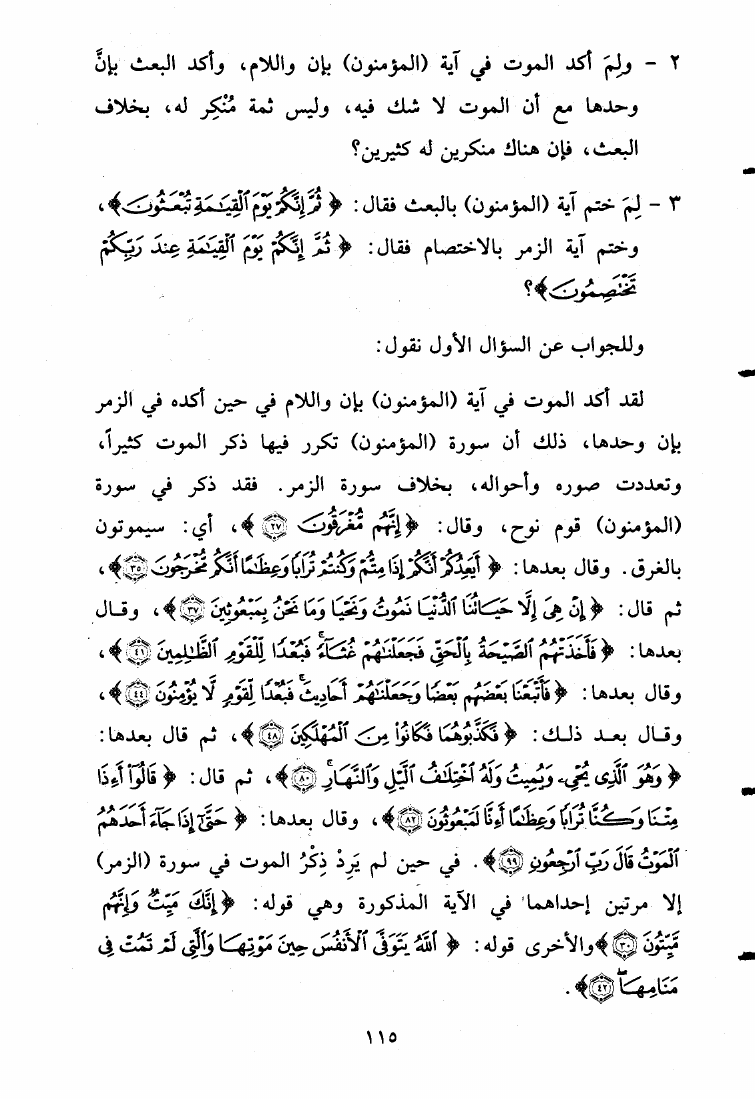 ٢ - ولِمَ أكد الموت في آية (المؤمنون) بإن واللام، وأكد البعث بإنَّ
وحدها مع أن الموت لا شك فيه، وليس ثمة مُنْكِر له، بخلاف
البعث، فإن هناك منكرين له كثيرين؟
٣ - لِمَ ختم آية (المؤمنون) بالبعث فقال: ﴿ ثُمَّ إِنَّكُمْ يَوْمَ ٱلْقِيَٰمَةِ تُبْعَثُونَ ﴾،
وختم آية الزمر بالاختصام فقال: ﴿ ثُمَّ إِنَّكُمْ يَوْمَ ٱلْقِيَٰمَةِ عِندَ رَبِّكُمْ
تَخْتَصِمُونَ ﴾؟
وللجواب عن السؤال الأول نقول:
لقد أكد الموت في آية (المؤمنون) بإن واللام في حين أكده في الزمر
بإن وحدها، ذلك أن سورة (المؤمنون) تكرر فيها ذكر الموت كثيراً،
وتعددت صوره وأحواله، بخلاف سورة الزمر. فقد ذكر في سورة
(المؤمنون) قوم نوح، وقال: ﴿ إِنَّهُم مُّغْرَقُونَ ٢٧ ﴾، أي: سيموتون
بالغرق. وقال بعدها: ﴿ أَيَعِدُكُمْ أَنَّكُمْ إِذَا مِتُّمْ وَكُنتُمْ تُرَابًا وَعِظَٰمًا أَنَّكُم مُّخْرَجُونَ ٣٥ ﴾،
ثم قال: ﴿ إِنْ هِىَ إِلَّا حَيَاتُنَا ٱلدُّنْيَا نَمُوتُ وَنَحْيَا وَمَا نَحْنُ بِمَبْعُوثِينَ ٣٧ ﴾، وقال
بعدها: ﴿ فَأَخَذَتْهُمُ ٱلصَّيْحَةُ بِٱلْحَقِّ فَجَعَلْنَٰهُمْ غُثَآءً ۚ فَبُعْدًا لِّلْقَوْمِ ٱلظَّٰلِمِينَ ٤١ ﴾،
وقال بعدها: ﴿ فَأَتْبَعْنَا بَعْضَهُم بَعْضًا وَجَعَلْنَٰهُمْ أَحَادِيثَ ۚ فَبُعْدًا لِّقَوْمٍ لَّا يُؤْمِنُونَ ٤٤ ﴾،
وقال بعد ذلك: ﴿ فَكَذَّبُوهُمَا فَكَانُوا۟ مِنَ ٱلْمُهْلَكِينَ ٤٨ ﴾، ثم قال بعدها:
﴿ وَهُوَ ٱلَّذِى يُحْىِۦ وَيُمِيتُ وَلَهُ ٱخْتِلَٰفُ ٱلَّيْلِ وَٱلنَّهَارِ ۚ ٨٠ ﴾، ثم قال: ﴿ قَالُوٓا۟ أَءِذَا
مِتْنَا وَكُنَّا تُرَابًا وَعِظَٰمًا أَءِنَّا لَمَبْعُوثُونَ ٨٢ ﴾، وقال بعدها: ﴿ حَتَّىٰٓ إِذَا جَآءَ أَحَدَهُمُ
ٱلْمَوْتُ قَالَ رَبِّ ٱرْجِعُونِ ٩٩ ﴾. في حين لم يَرِدْ ذِكْرُ الموت في سورة (الزمر)
إلا مرتين إحداهما في الآية المذكورة وهي قوله: ﴿ إِنَّكَ مَيِّتٌ وَإِنَّهُم
مَّيِّتُونَ ٣٠ ﴾ والأخرى قوله: ﴿ ٱللَّهُ يَتَوَفَّى ٱلْأَنفُسَ حِينَ مَوْتِهَا وَٱلَّتِى لَمْ تَمُتْ فِى
مَنَامِهَا ۖ ٤٢ ﴾.
١١٥